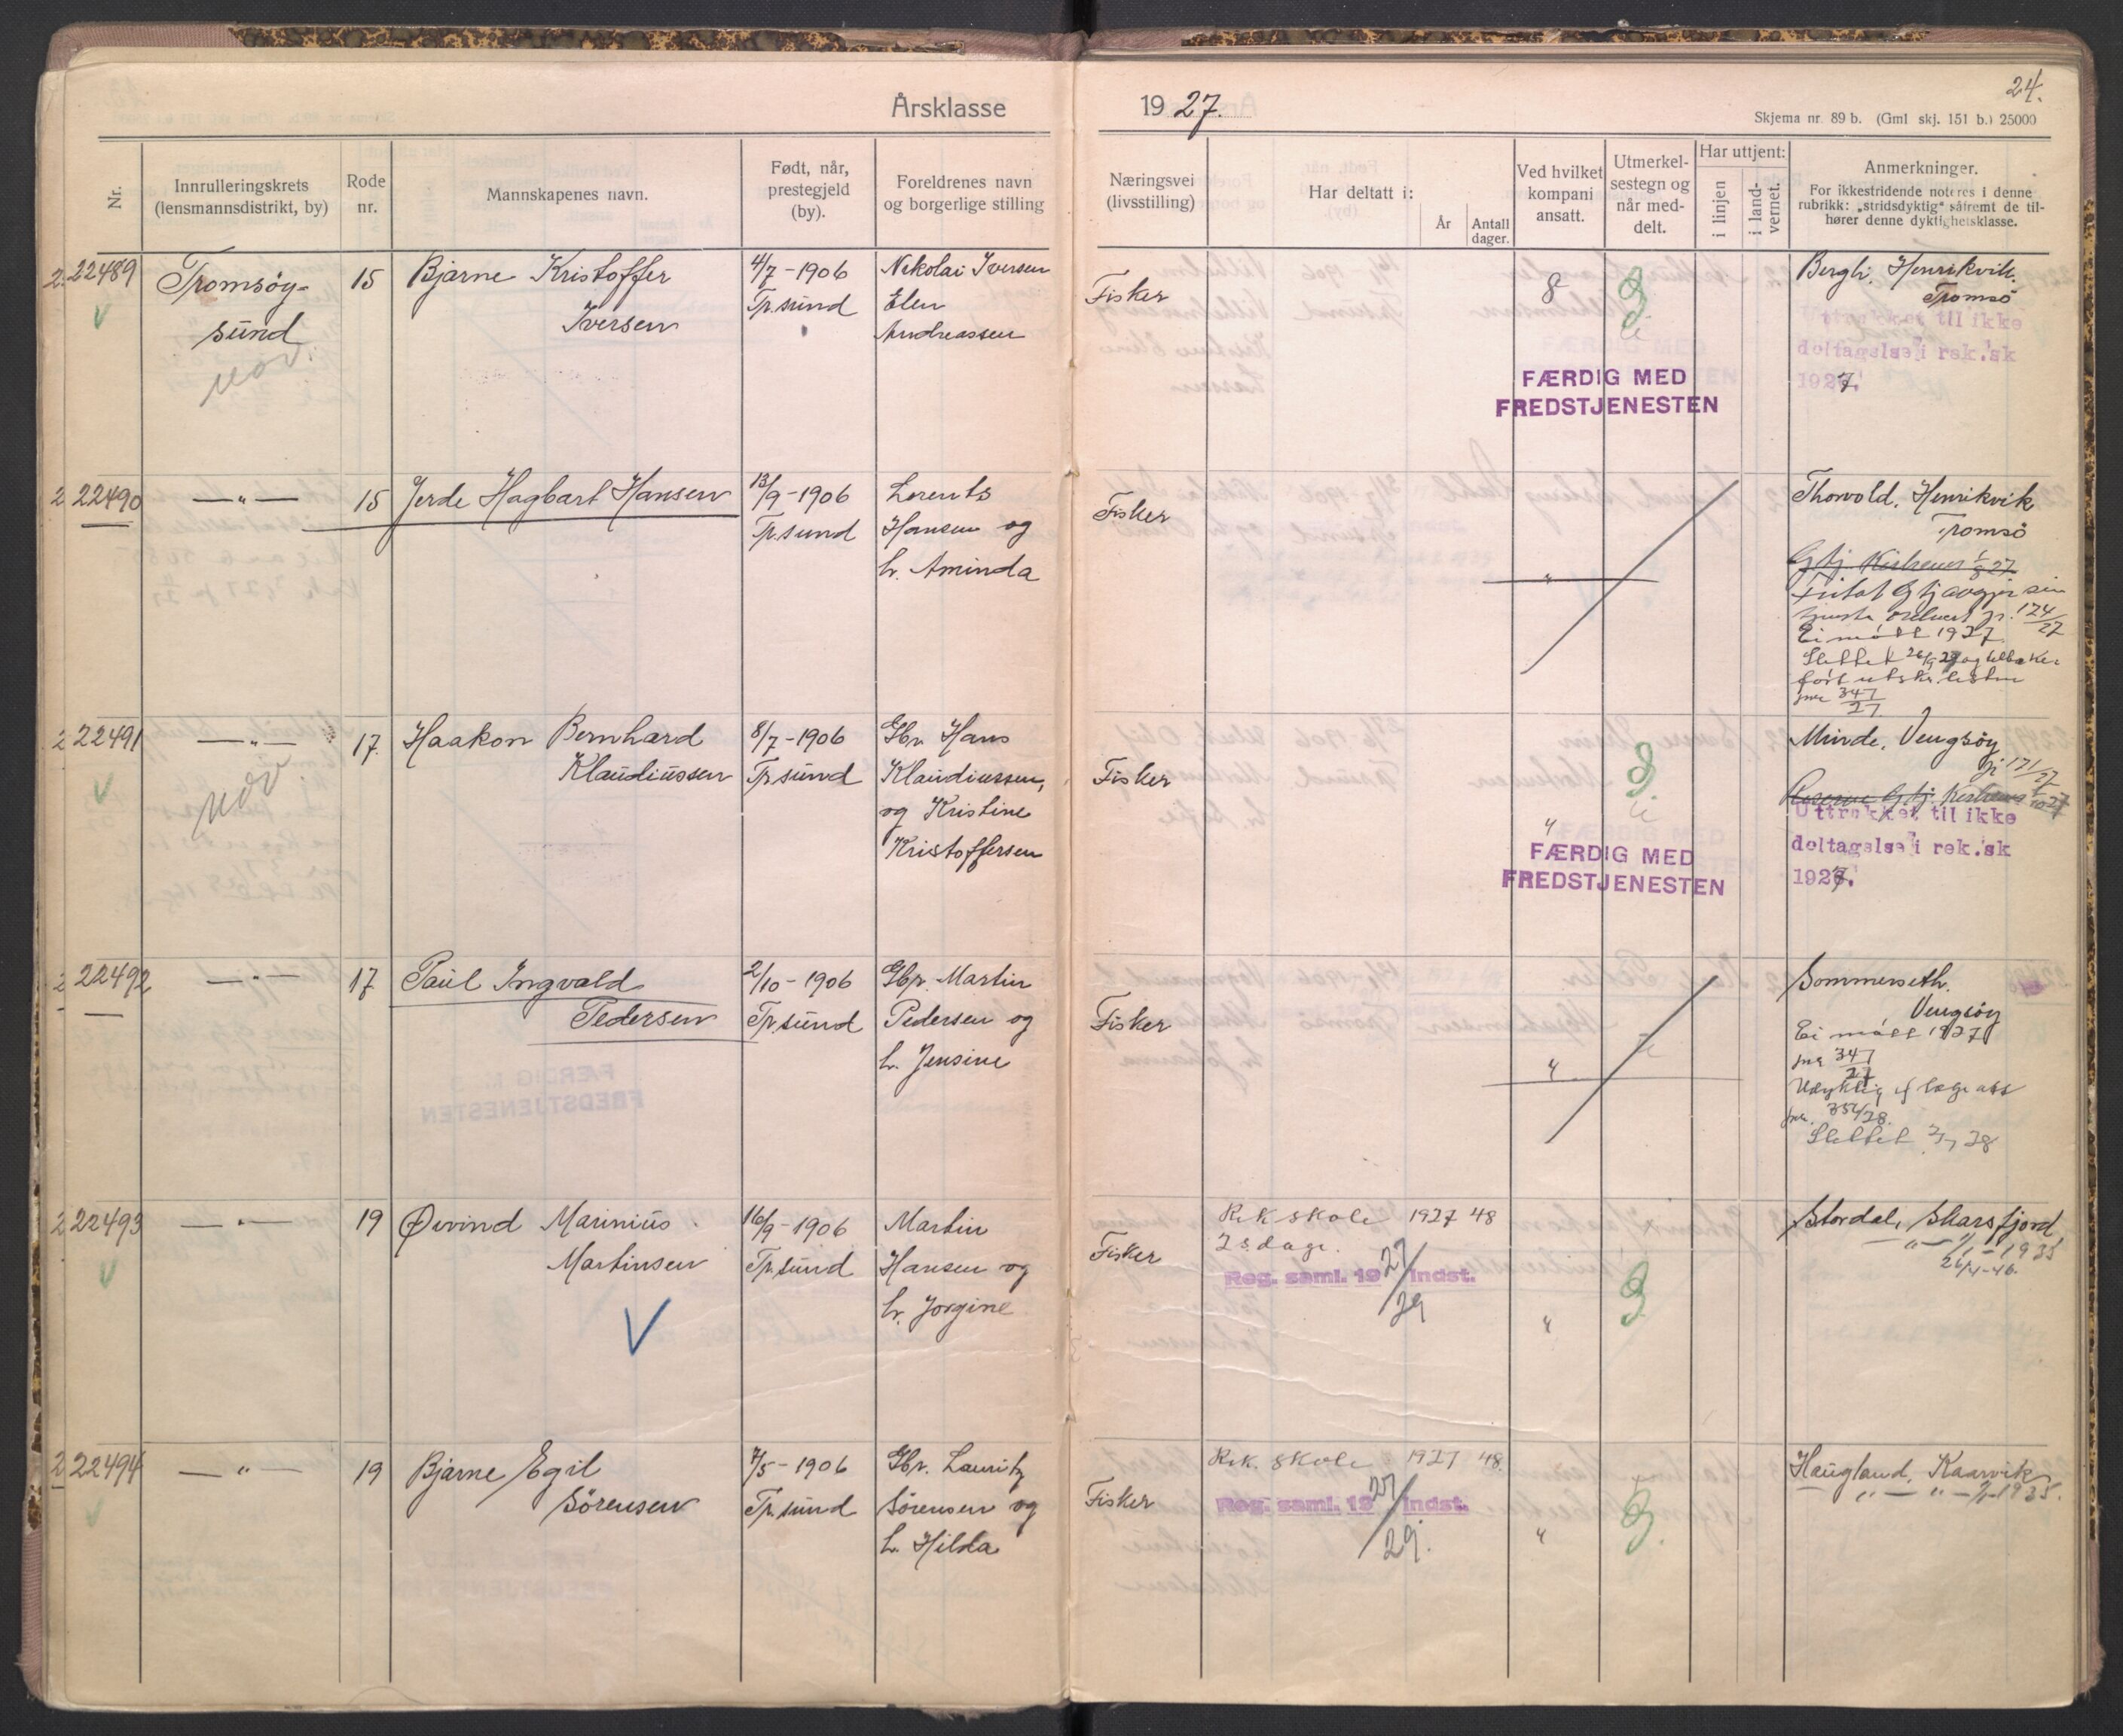 24.
Årsklasse 1927.
Skjema nr. 89 b. (Gml skj. 151 b.) 25000
Nr.
Innrulleringskrets
(lensmannsdistrikt, by)
Rode
nr.
Mannskapenes navn.
Født, når,
prestegjeld
(by).
Foreldrenes navn
og borgerlige stilling
Næringsvei
(livsstilling)
Har deltatt i:
År
Antall
dager.
Ved hvilket
kompani
ansatt.
Utmerkel-
sestegn og
når med-
delt.
Har uttjent:
i linjen
i land-
vernet.
Anmerkninger.
For ikkestridende noteres i denne
rubrikk: „stridsdyktig" såfremt de til-
hører denne dyktighetsklasse.
2 22489
Tromsöy-
sund
15
Bjarne Kristoffer
Iversen
4/7 - 1906
Tr.sund
Nikolai Iversen
Elen
Andreassen
Fisker
8
FÆRDIG MED
FREDSTJENESTEN
Bergli, Henrikvik.
Tromsö
Uttrukket til ikke
deltagelse i rek.sk
1927.
2 22490
— „ —
15
Jerde Hagbart Hansen
13/9 - 1906
Tr.sund
Lorents
Hansen og
h. Aminda
Fisker
„
Thorvold, Henrikvik
Tromsö
G tj. Kirkenes 1/8 27
Ei mött 1927
Slettet 26/9 27 og tilbake
fört utskr. listen
jnr 347/27
2 22491
— „ —
17
Haakon Bernhard
Klaudiussen
8/7 - 1906
Tr.sund
Gbr. Hans
Klaudiussen,
og Kristine
Kristoffersen
Fisker
„
FÆRDIG MED
FREDSTJENESTEN
Minde, Vengsöy
171/27
Reserve G tj. Kirkenes 1/10 27
Uttrukket til ikke
deltagelse i rek.sk
1927.
2 22492
— „ —
17
Paul Ingvald
Pedersen
2/10 - 1906
Tr.sund
Gbr. Martin
Pedersen og
h. Jensine
Fisker
„
Sommerseth.
Vengsöy
Ei mött 1927
jnr 347/27
Udyktig
jnr. 354/28.
Slettet 28
2 22493
— „ —
19
Øivind Marinius
Martinsen
16/9 - 1906
Tr.sund
Martin
Hansen og
h. Jorgine
Fisker
Rek skole 1927 48
Reg. saml. 1927/29 indst.
„
Stordal, Skarsfjord
— „ — 1/1 - 1935
26/4 - 46.
2 22494
— „ —
19
Bjarne Egil
Sörensen
7/5 - 1906
Tr.sund
Gbr. Lauritz
Sörensen og
h. Hilda
Fisker
Rek. skole 1927 48.
Reg. saml. 1927/29. indst.
„
Haugland, Kaarvik
„ — „ — 1/1-1935.